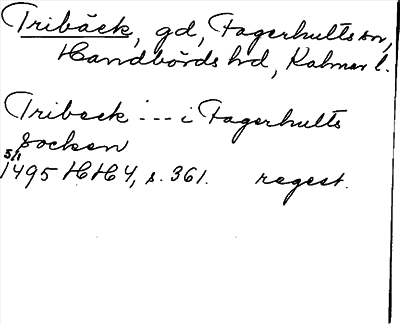 Tribäck, gd, Fagerhults sn,
Handbörds hd, Kalmar l.
Tribeck --- i Fagerhults
socken
5/1
1495 HH 4, s. 361. regest.